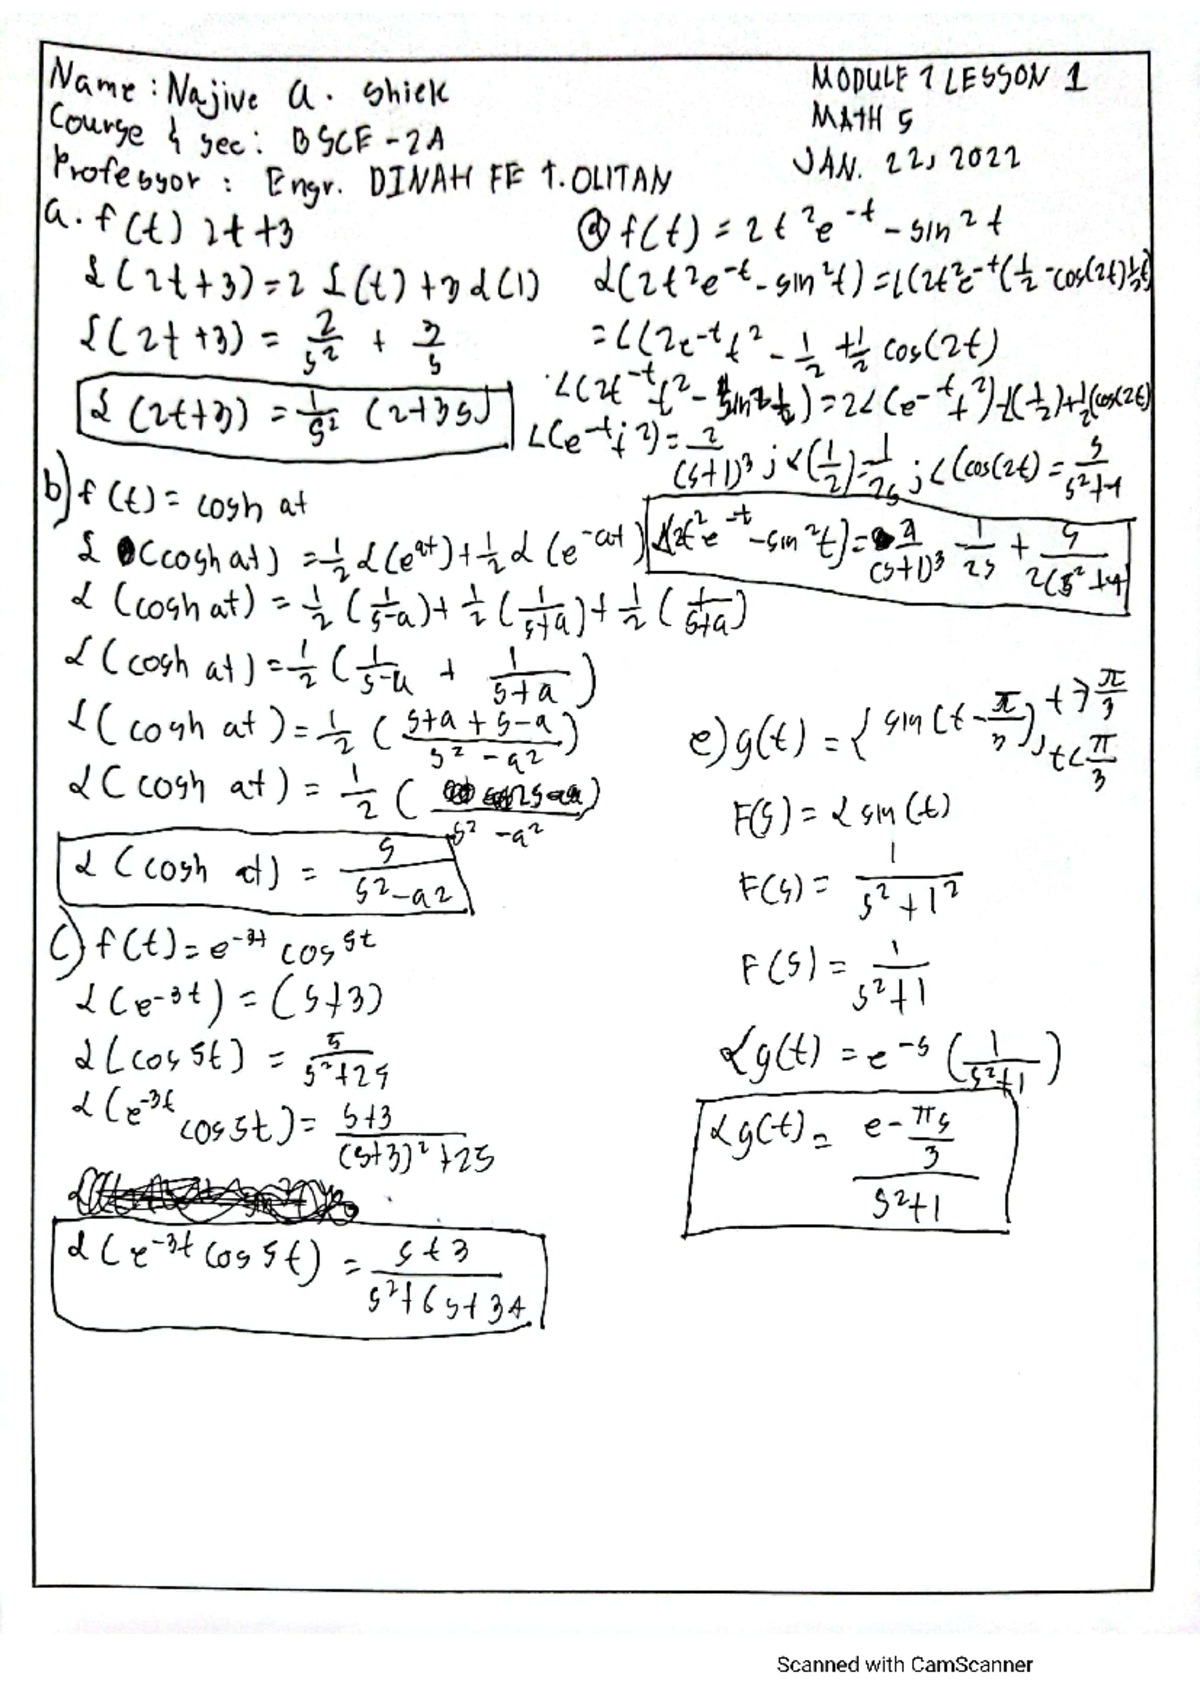 Name : Najive A. Shiek
Course & sec : BSCE - 2A
Professor : Engr. DINAH FE T. OLITAN
MODULE 7 LESSON 1
MATH 5
JAN. 22, 2022
a. f(t) 2t+3
ℒ(2t+3) = 2 ℒ(t) + 3 ℒ(1)
ℒ(2t+3) = 2/s² + 3/s
ℒ(2t+3) = 1/s² (2+3s)
b) f(t) = cosh at
ℒ (cosh at) = 1/2 ℒ(e^at) + 1/2 ℒ(e^-at)
ℒ (cosh at) = 1/2 (1/s-a) + 1/2 (1/s+a) + 1/2 (1/s+a)
ℒ (cosh at) = 1/2 (1/s-a + 1/s+a)
ℒ (cosh at) = 1/2 (s+a+s-a / s²-a²)
ℒ (cosh at) = 1/2 ( / s²-a²)
ℒ (cosh at) = s / s²-a2
c) f(t) = e^-3t cos 5t
ℒ(e^-3t) = (s+3)
ℒ(cos 5t) = s / s²+25
ℒ(e^-3t cos 5t) = s+3 / (s+3)²+25
ℒ(e^-3t cos 5t) = s+3 / s²+6s+34
d) f(t) = 2t²e^-t - sin²t
ℒ(2t²e^-t - sin²t) = L(2t²e^-t (1/2 - cos(2t) 1/2
= L(2e^-t t² - 1/2 + 1/2 cos(2t)
= 2L(e^-t t²) - L(1/2) + 1/2 (cos(2t)
= 2/(s+1)³ ; L(1/2) = 1/2s ; L(cos(2t) = s/s²+4
(2t²e^-t - sin²t) = 4/(s+1)³ - 1/2s + s/2(s²+4
e) g(t) = { sin (t - π/3), t > π/3
t < π/3
F(s) = ℒ sin(t)
F(s) = 1 / s²+1²
F(s) = 1 / s²+1
ℒg(t) = e^-s (1 / s²+1)
ℒg(t) = e-πs/3 / s²+1
Scanned with CamScanner